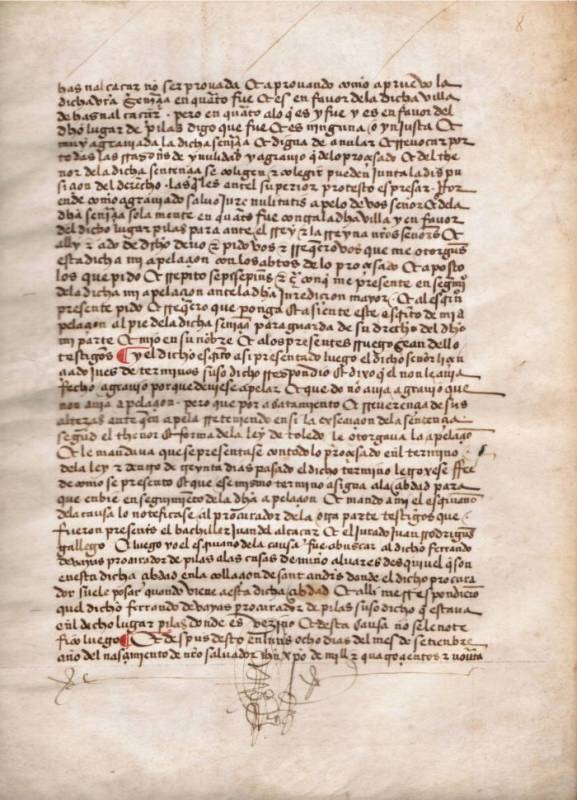 8
has nalcaçar nõ ser provada Et aprovando como apruevo la
dicha vrã señtençia en quãto fue Et es en favor dela dicha villa
de has nal caçar. pero en quãto alo q̃ es y fue y es en favor del
dho lugar de pilas digo que fue Et es ninguna o ynjusta Et
muy agraviada la dicha señtẽçia Et digna de anular Et rrevocar por
todas las rrazoñs de ynulidad y agravio q̃ delo proçesado Et del the
nor dela dicha sentençia se coligen Et colegir pueden juntala dispu
siçion del derecho. las q̃les entel superior protesto espresar. Por
ende como agraviado salvo jure nulitatis apelo de vos señor Et dela
dhã señtẽçia sola mente en quãto fue contra la dha villa y en favor
del dicho lugar pilas para ante el Rrey Et la Rreyna nrõs señorẽs Et
ally Et ado de drecho devo Et pido vos Et rreq̃ero vos que me otorguẽs
esta dicha mi apelaçion con los abtos delo proçesado Et aposto
los que pido Et rrepito sepe sepiuṡ Et cõ q̃ me presente en segm̃to
dela dicha mi apelaçion ante la dhã juredicion mayor. Et al escriṽo
presente pido Et rreq̃ero que ponga Et asiente este escrito de mi a
pelaçion al pie dela dicha señtẽçia para guarda de su drecho del dho
mi parte Et mio en su nõbre Et alos presentes rruego sean dello
testigos ¶ y el dicho escrito asi presentado luego el dicho señor liçen
çiado jues de terminos suso dicho rrespondio Et dixo q̃ el non le avia
fecho agravio por que deviese apelar Et que do nõ avia agravio que
non avia apelaçion. pero que por acatamiento Et rreverençia de sus
altezas ante quien apela rreteniendo en si la exsecuçion dela sentençia
segund el thenor Et forma dela ley de toledo le otorgava la apelaçiõ
Et le mandava que se presentase con todo lo proçesado enl termino
dela ley Et dentro de treynta dias pasado el dicho termino le troxese ffee
de como se presento Et que ese mismo termino asigna ala çibdad para
que enbie en seguimiento dela dhã apelaçion Et mando ami el escriuano
dela causa lo notificase al procurador dela otra parte testigos que
fueron presentes el bachiller juan del alcaçar Et el jurado juan rrodrigues
gallego. E luego yo el escriuano dela causa fue a buscar al dicho ferrando
de vayas procurador de pilas alas casas de niño alvares de esquivel q̃ son
en esta dicha çibdad en la collaçion de sant andrés donde el dicho procura
dor suele posar quando viene a esta dicha çibdad Et alli me rrespondieron
quel dicho ferrando de vayas procurador de pilas suso dicho q̃ estava
enl dicho lugar pilas donde es vezino Et desta causa no se le note
fico luego ¶ Et despues desto en lunes ocho dias del mes de setienbre
año del nasçimiento de nrõ salvador ihũ xpo de mill Et quatroçentos Et nouẽta